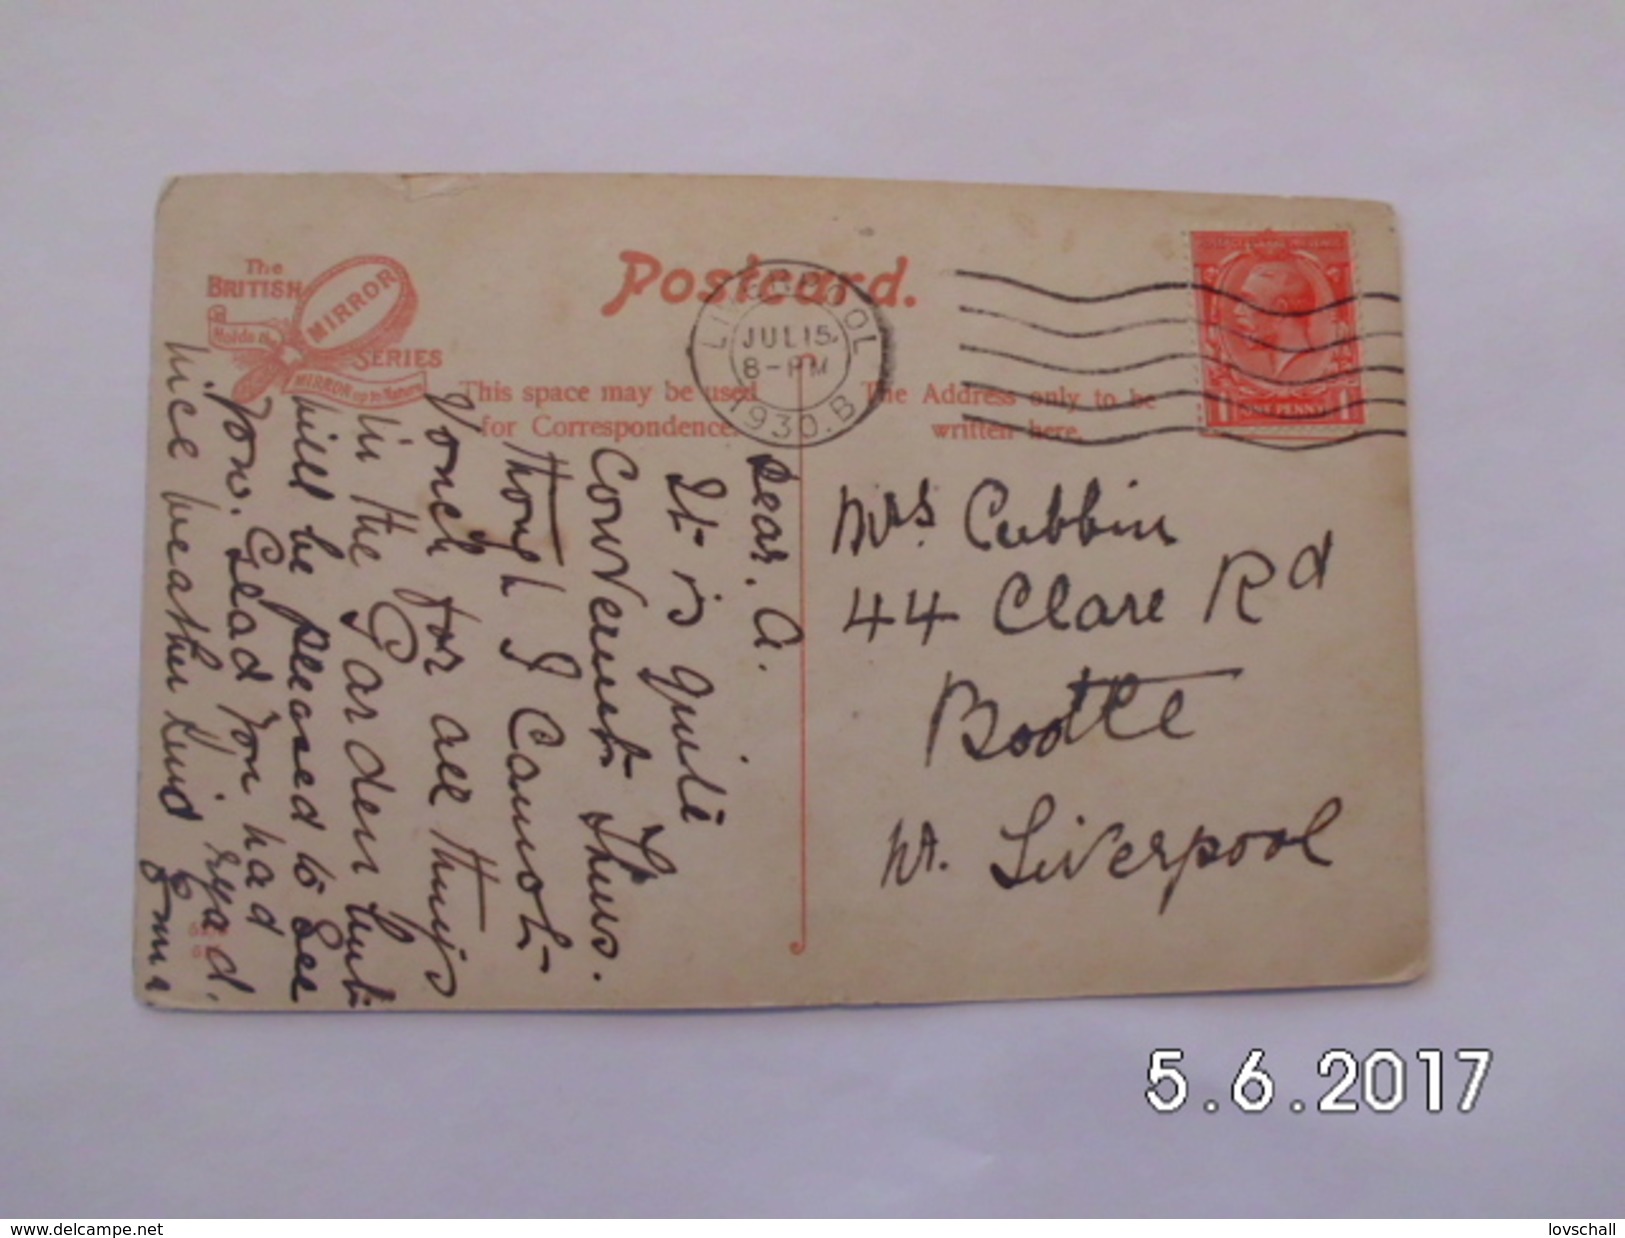 The
BRITISH
MIRROR
SERIES
Holds the
MIRROR up to Nature
Postcard.
LIVERPOOL
JUL 15
8 - PM
1930. B
ONE PENNY
This space may be used
for Correspondence.
The Address only to be
written here.
Dear. A.
It is quite
Convenient Thurs.
though I Cannot
vouch for all things
in the Garden but
will be pleased to see
You. Glad You had
nice weather kind
Emma
Mrs. Cubbin
44 Clare Rd
Bootle
Nr. Liverpool
5.6.2017
www.delcampe.net
lovschall